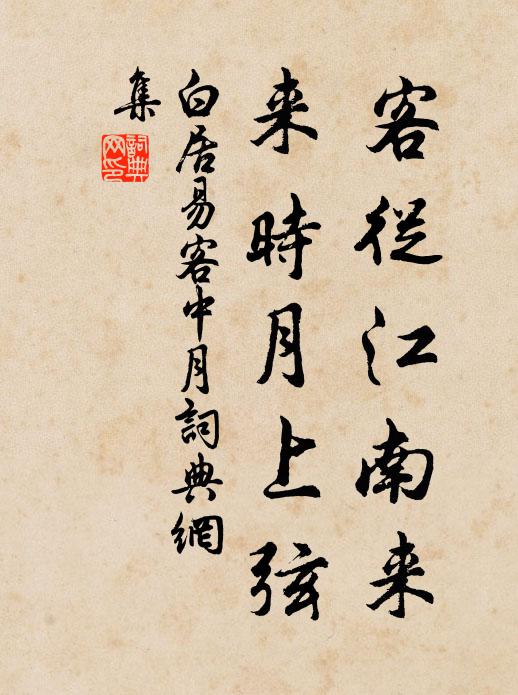 客從江南来
来時月上弦
白居易客中月詞典網
集
詞典
网印